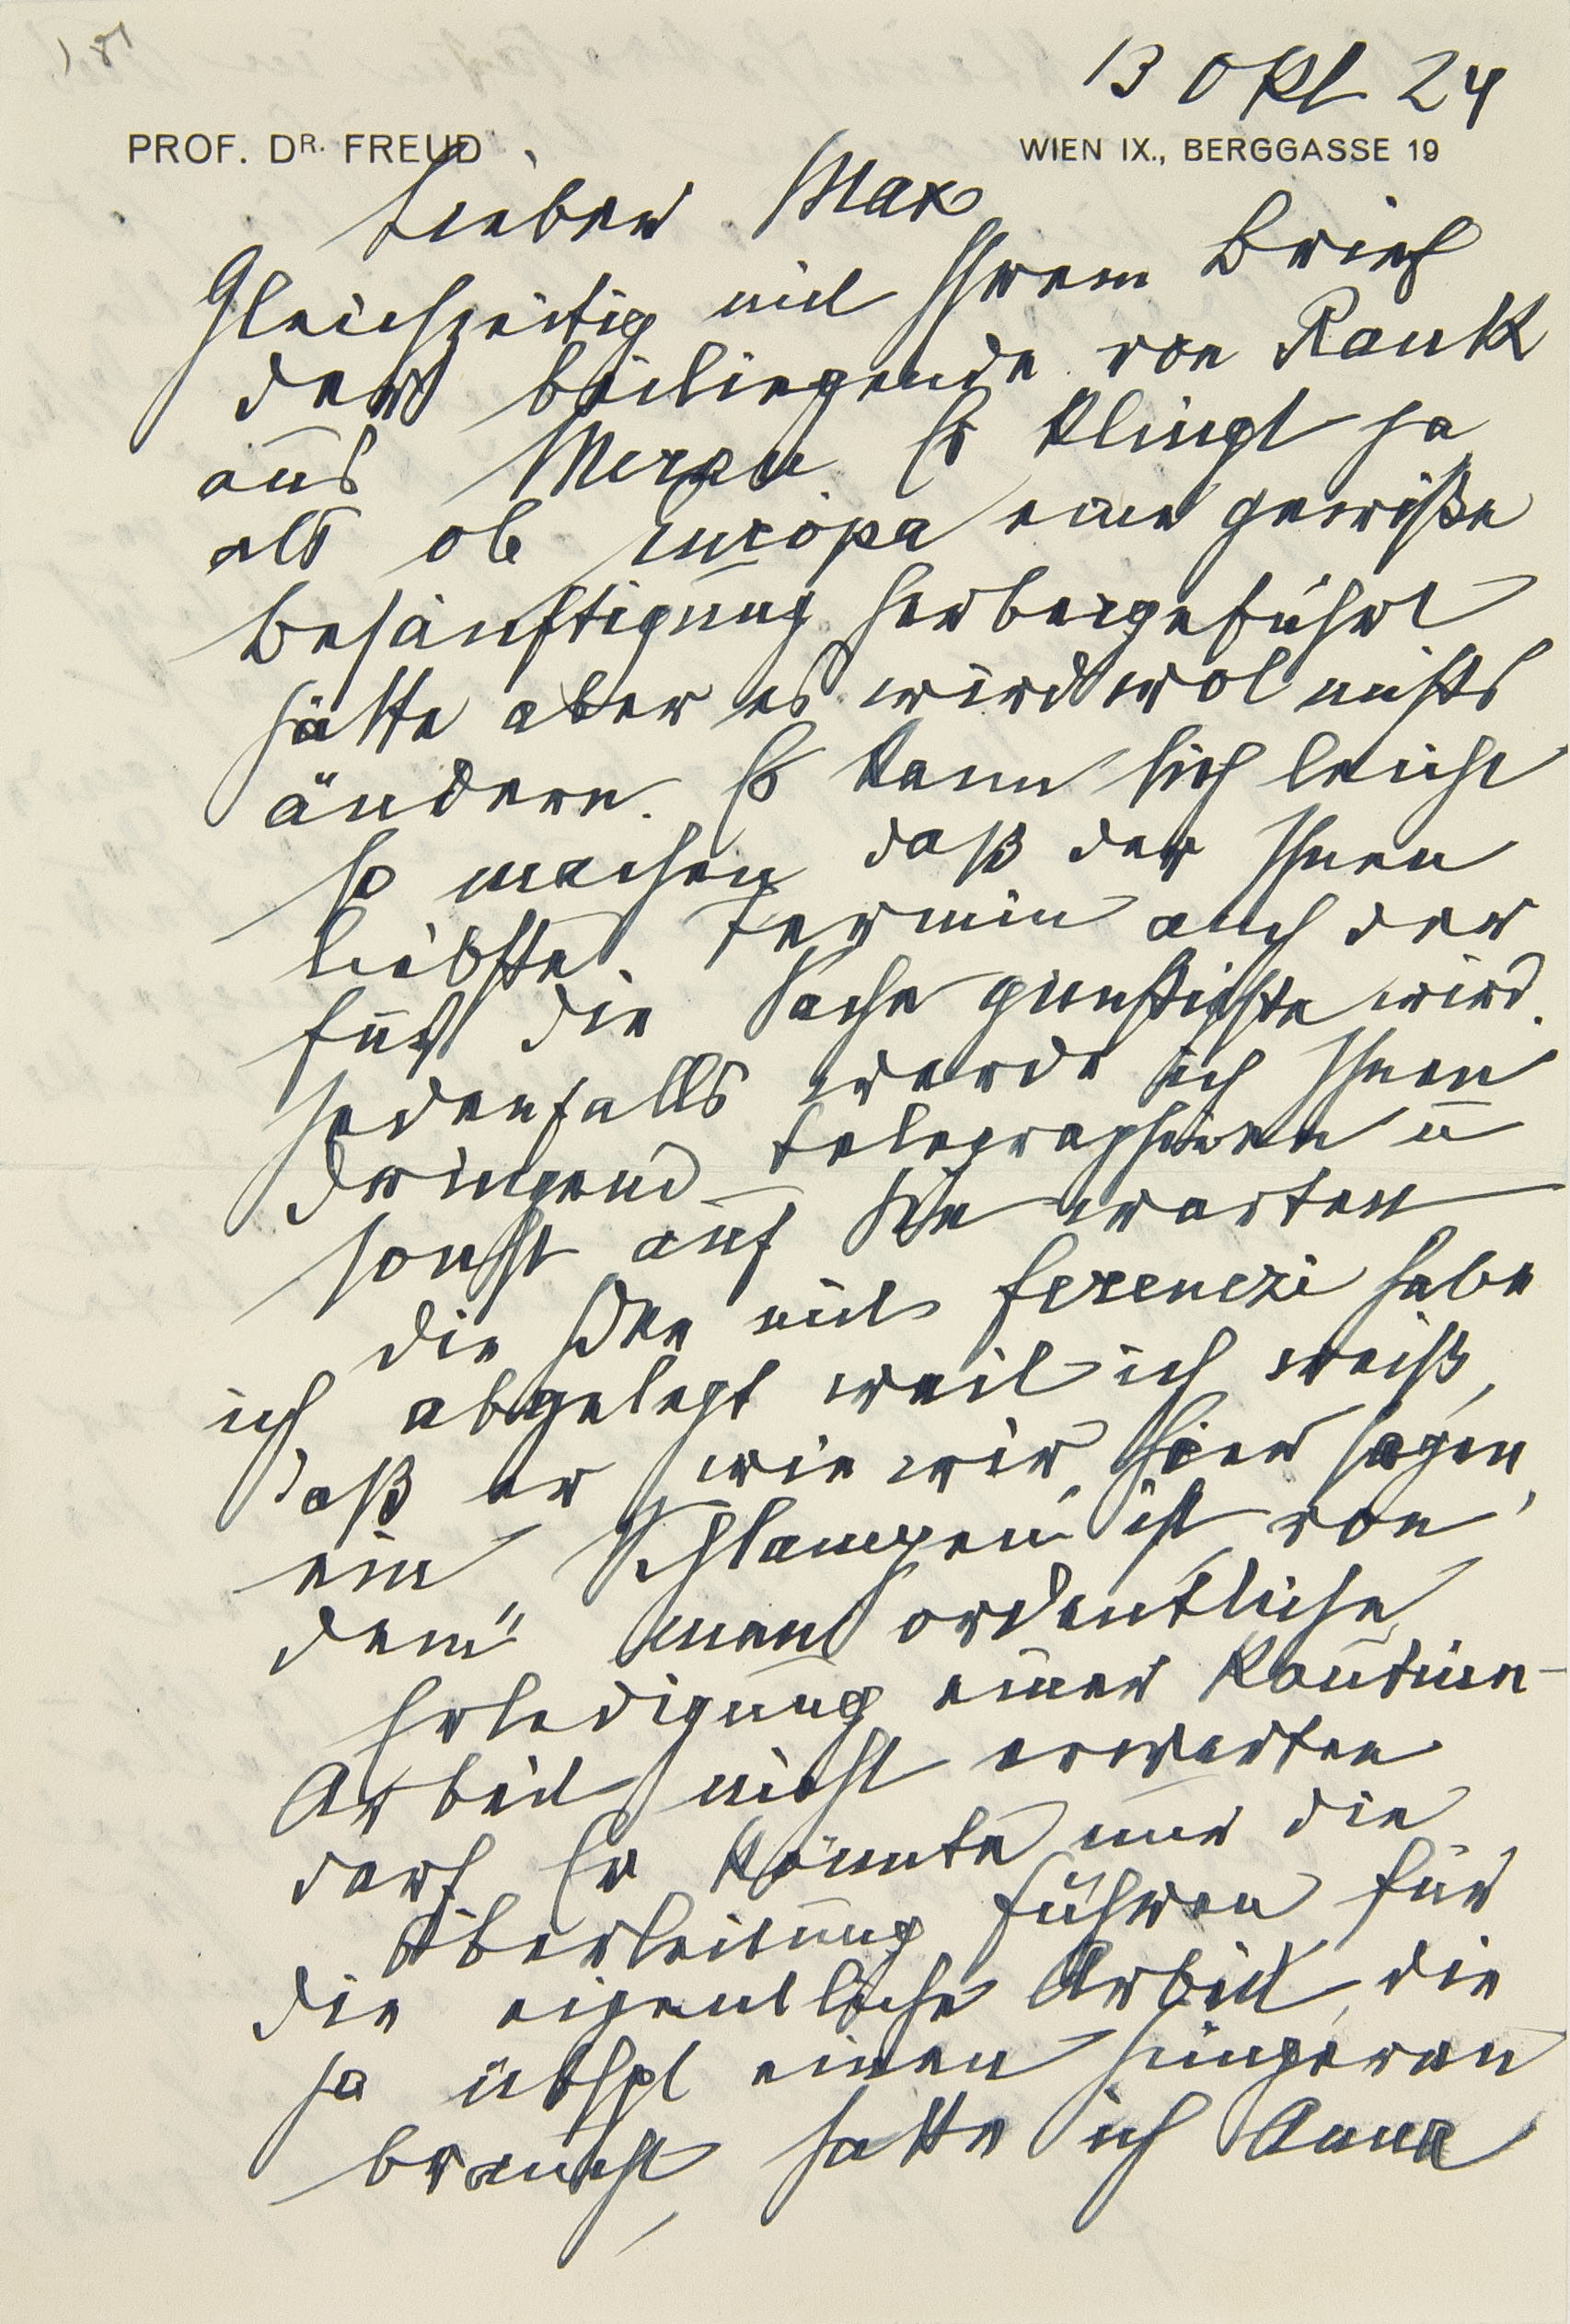 13 Okt 24
PROF. DR. FREUD
WIEN IX., BERGGASSE 19
Lieber Max
Gleichzeitig mit Ihrem Brief
der beiliegende von Rank
aus Meran. Es klingt ja
als ob Europa eine gewiße
Besänftigung herbeigeführt
hätte aber es wird wol nichts
ändern. Es kann sich leicht
so machen daß der Ihnen
liebste Termin auch der
für die Sache günstigste wird.
Jedenfalls werde ich Ihnen
dringend telegraphiren u
sonst auf Sie warten
Die Idee mit Ferenczi habe
ich abgelegt weil ich weiß,
daß er wie wir hier sagen,
ein „Schlamperl ist von
dem" man ordentliche
Erledigung einer Routine-
Arbeit nicht erwarten
darf Er könnte nur die
Überleitung führen für
die eigentliche Arbeit, die
ja übhpt einen jüngeren
braucht, hatte ich Anna